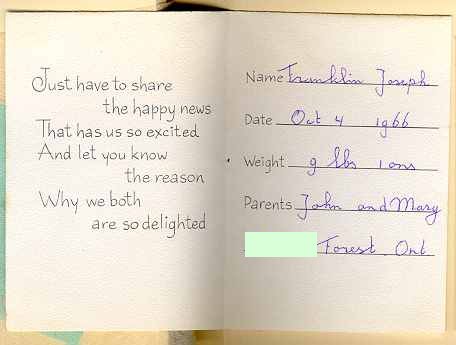 Just have to share
the happy news
That has us so excited
And let you know
the reason
Why we both
are so delighted
Name Franklin Joseph
Date Oct 4 1966
Weight 9 lbs 1 ons
Parents John and Mary
Forest Ont